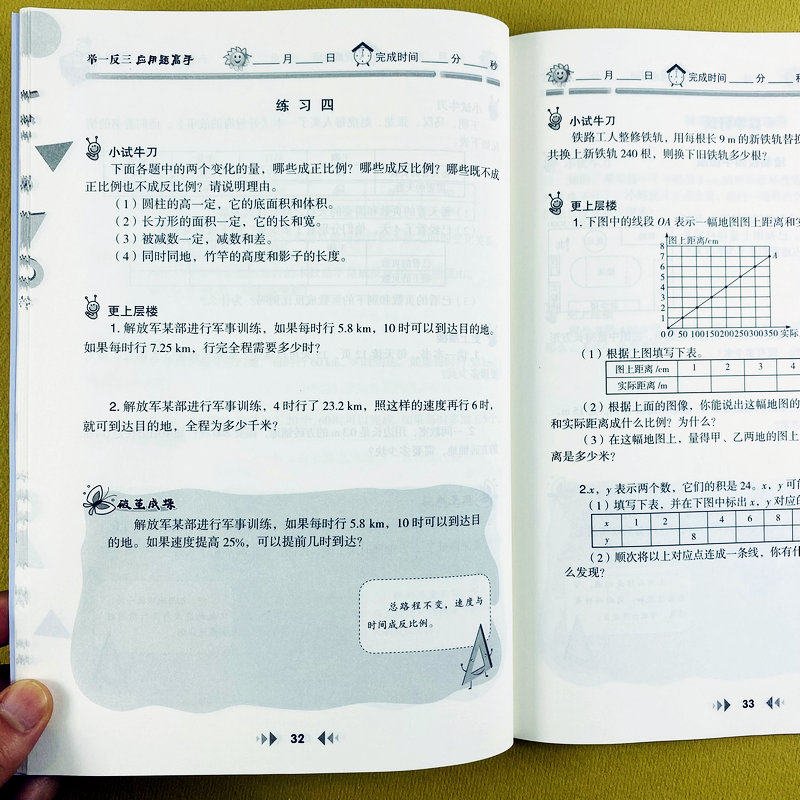 举一反三 应用题高手
月 日 完成时间 分 秒
练习四
小试牛刀
下面各题中的两个变化的量,哪些成正比例?哪些成反比例?哪些既不成
正比例也不成反比例?请说明理由。
(1)圆柱的高一定,它的底面积和体积。
(2)长方形的面积一定,它的长和宽。
(3)被减数一定,减数和差。
(4)同时同地,竹竿的高度和影子的长度。
更上层楼
1. 解放军某部进行军事训练,如果每时行 5.8 km,10 时可以到达目的地。
如果每时行 7.25 km,行完全程需要多少时?
2. 解放军某部进行军事训练,4 时行了 23.2 km,照这样的速度再行 6 时,
就可到达目的地,全程为多少千米?
破茧成蝶
解放军某部进行军事训练,如果每时行 5.8 km,10 时可以到达目
的地。如果速度提高 25%,可以提前几时到达?
总路程不变,速度与
时间成反比例。
32
月 日 完成时间 分 秒
小试牛刀
铁路工人整修铁轨,用每根长 9 m 的新铁轨替换
共换上新铁轨 240 根,则换下旧铁轨多少根?
更上层楼
1. 下图中的线段 OA 表示一幅地图图上距离和实
图上距离/cm
8
7
6
5
4
3
2
1
A
0 0 50 100 150 200 250 300 350 实际
(1)根据上图填写下表。
图上距离 /cm 1 2 3 4
实际距离 /m
(2)根据上面的图像,你能说出这幅地图的
和实际距离成什么比例?为什么?
(3)在这幅地图上,量得甲、乙两地的图上
离是多少米?
2. x,y 表示两个数,它们的积是 24。x,y 可
(1)填写下表,并在下图中标出 x,y 对应的
x 1 2 4 6 8
y 8
(2)顺次将以上对应点连成一条线,你有什
么发现?
33